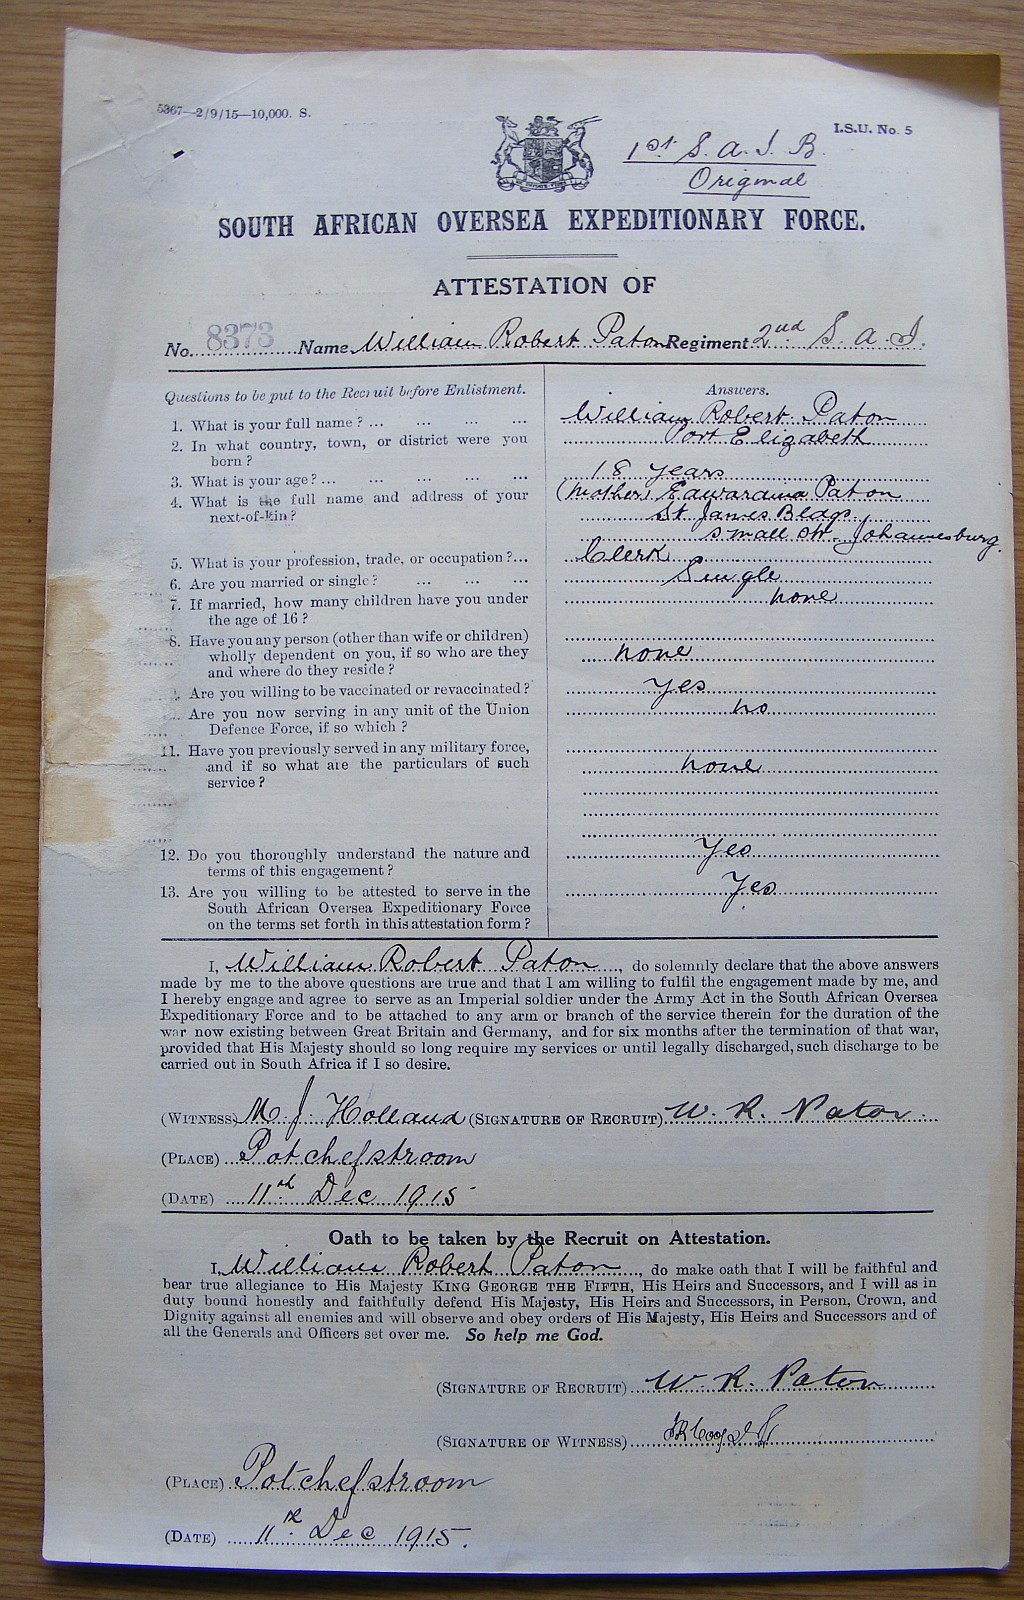 5367—2/9/15—10,000. S.
I.S.U. No. 5
1st S. A. I. B.
Original
SOUTH AFRICAN OVERSEA EXPEDITIONARY FORCE.
ATTESTATION OF
No. 8373 Name William Robert Paton Regiment 2nd S. A. I.
Questions to be put to the Recruit before Enlistment.
Answers.
1. What is your full name? ... ... ... ...
William Robert Paton
2. In what country, town, or district were you
born?
Port Elizabeth
3. What is your age? ... ... ... ... ...
18 years
4. What is the full name and address of your
next-of-kin?
(Mother) Edwardina Paton
St. James Bldgs.
Small St. Johannesburg.
5. What is your profession, trade, or occupation?...
Clerk
6. Are you married or single? ... ... ...
Single
7. If married, how many children have you under
the age of 16?
none
8. Have you any person (other than wife or children)
wholly dependent on you, if so who are they
and where do they reside?
none
Are you willing to be vaccinated or revaccinated?
Yes
Are you now serving in any unit of the Union
Defence Force, if so which?
no
11. Have you previously served in any military force,
and if so what are the particulars of such
service?
none
12. Do you thoroughly understand the nature and
terms of this engagement?
Yes
13. Are you willing to be attested to serve in the
South African Oversea Expeditionary Force
on the terms set forth in this attestation form?
Yes
I, William Robert Paton, do solemnly declare that the above answers
made by me to the above questions are true and that I am willing to fulfil the engagement made by me, and
I hereby engage and agree to serve as an Imperial soldier under the Army Act in the South African Oversea
Expeditionary Force and to be attached to any arm or branch of the service therein for the duration of the
war now existing between Great Britain and Germany, and for six months after the termination of that war,
provided that His Majesty should so long require my services or until legally discharged, such discharge to be
carried out in South Africa if I so desire.
(WITNESS) M. J. Holland (SIGNATURE OF RECRUIT) W. R. Paton
(PLACE) Potchefstroom
(DATE) 11th Dec 1915
Oath to be taken by the Recruit on Attestation.
I, William Robert Paton, do make oath that I will be faithful and
bear true allegiance to His Majesty KING GEORGE THE FIFTH, His Heirs and Successors, and I will as in
duty bound honestly and faithfully defend His Majesty, His Heirs and Successors, in Person, Crown, and
Dignity against all enemies and will observe and obey orders of His Majesty, His Heirs and Successors and of
all the Generals and Officers set over me. So help me God.
(SIGNATURE OF RECRUIT) W. R. Paton
(SIGNATURE OF WITNESS)
(PLACE) Potchefstroom
(DATE) 11th Dec 1915.